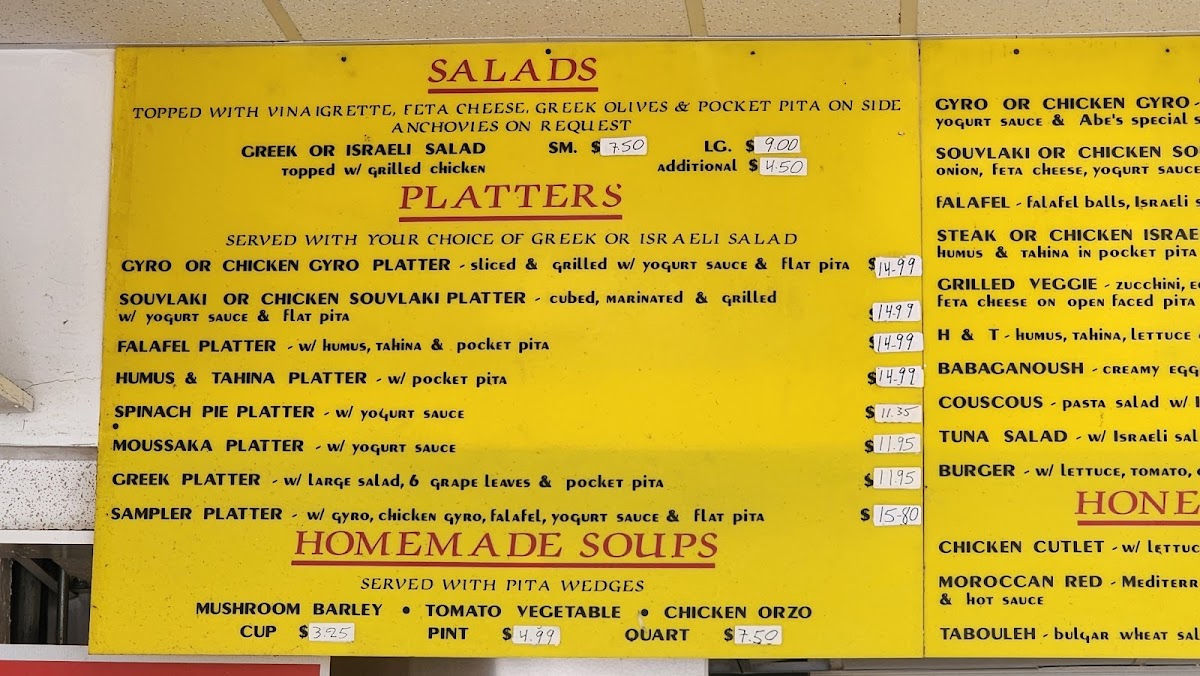 SALADS
TOPPED WITH VINAIGRETTE, FETA CHEESE, GREEK OLIVES & POCKET PITA ON SIDE
ANCHOVIES ON REQUEST
GREEK OR ISRAELI SALAD SM. $7.50 LG. $9.00
TOPPED W/ GRILLED CHICKEN ADDITIONAL $4.50
PLATTERS
SERVED WITH YOUR CHOICE OF GREEK OR ISRAELI SALAD
GYRO OR CHICKEN GYRO PLATTER - SLICED & GRILLED W/ YOGURT SAUCE & FLAT PITA $14-99
SOUVLAKI OR CHICKEN SOUVLAKI PLATTER - CUBED, MARINATED & GRILLED
W/ YOGURT SAUCE & FLAT PITA $14.99
FALAFEL PLATTER - W/ HUMUS, TAHINA & POCKET PITA $14-99
HUMUS & TAHINA PLATTER - W/ POCKET PITA $14-99
SPINACH PIE PLATTER - W/ YOGURT SAUCE $11.35
MOUSSAKA PLATTER - W/ YOGURT SAUCE $11.95
GREEK PLATTER - W/ LARGE SALAD, 6 GRAPE LEAVES & POCKET PITA $11.95
SAMPLER PLATTER - W/ GYRO, CHICKEN GYRO, FALAFEL, YOGURT SAUCE & FLAT PITA $15-80
HOMEMADE SOUPS
SERVED WITH PITA WEDGES
MUSHROOM BARLEY • TOMATO VEGETABLE • CHICKEN ORZO
CUP $3.25 PINT $4.99 QUART $7.50
GYRO OR CHICKEN GYRO -
YOGURT SAUCE & Abe's SPECIAL
SOUVLAKI OR CHICKEN
ONION, FETA CHEESE, YOGURT SAUCE
FALAFEL - FALAFEL BALLS, ISRAELI
STEAK OR CHICKEN
HUMUS & TAHINA IN POCKET PITA
GRILLED VEGGIE - ZUCCHINI,
FETA CHEESE ON OPEN FACED PITA
H & T - HUMUS, TAHINA, LETTUCE
BABAGANOUSH - CREAMY
COUSCOUS - PASTA SALAD W/
TUNA SALAD - W/ ISRAELI
BURGER - W/ LETTUCE, TOMATO,
CHICKEN CUTLET - W/
MOROCCAN RED -
& HOT SAUCE
TABOULEH - BULGAR WHEAT